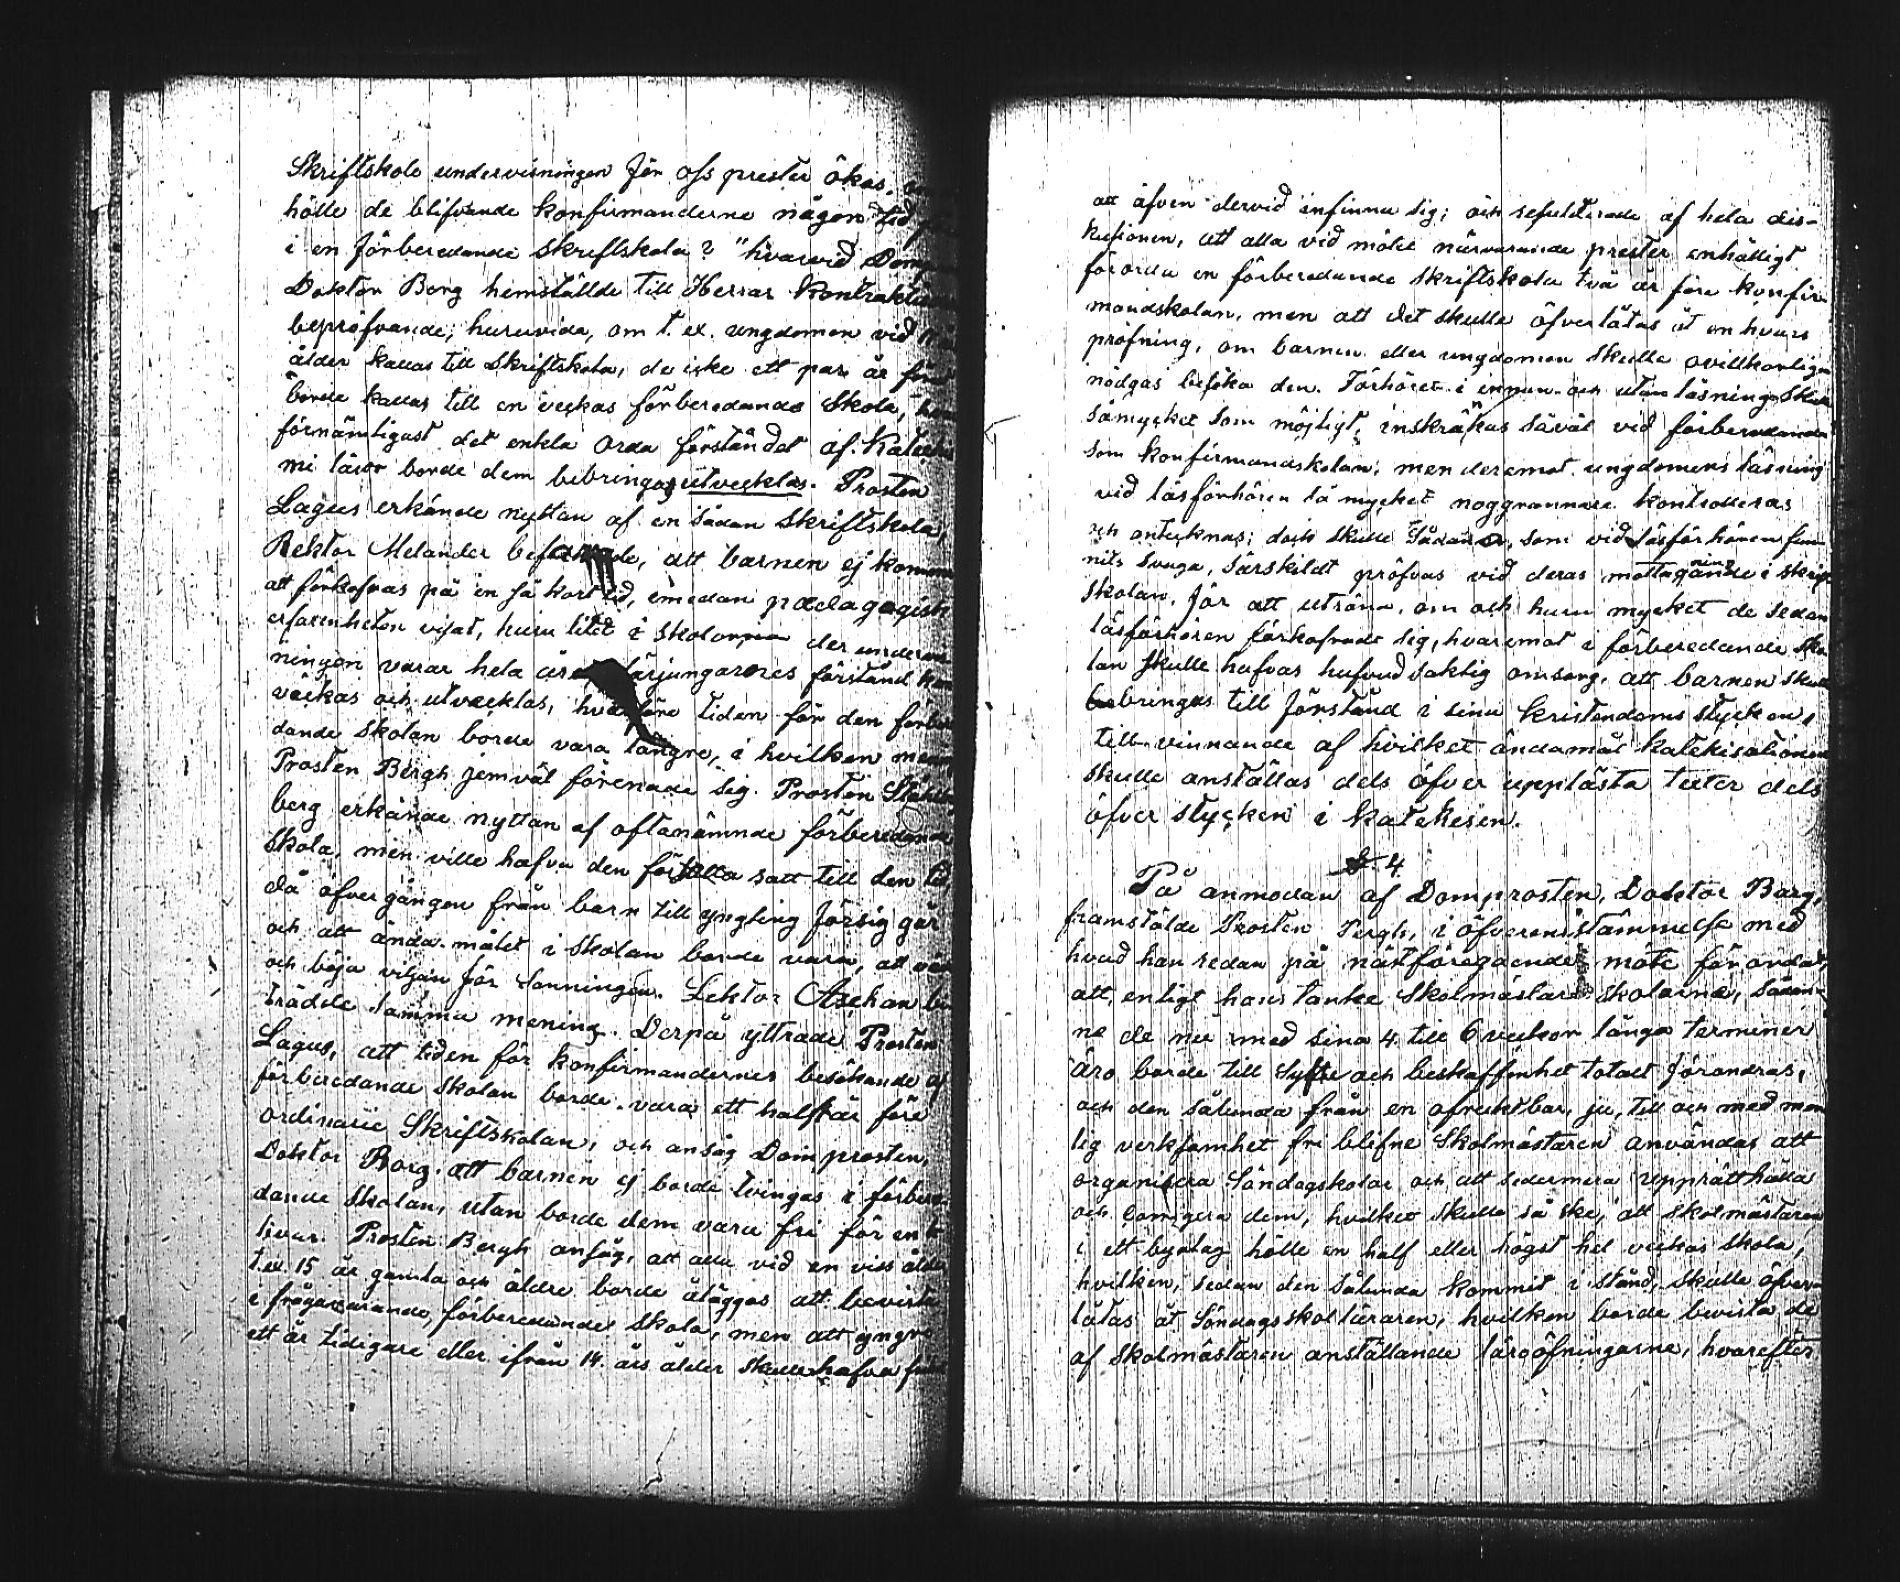 Skriftskole undervisningen för oss prester ökas,
hölle de blifvande konfirmanderne någon tid
i en förberedande skriftskola? "hvarvid Dom
Doktor Borg hemställde till Herrar Kontrakts
bepröfvande, huruvida, om t. ex. ungdomen vid
ålder kallas till Skriftskola, de icke ett par år före
borde kallas till en veckas förberedande Skola,
förnämligast det enkla orda förståndet af Kateches
mi läror borde dem bebringas utvecklas. Prosten
Lagus erkände nyttan af en sådan Skriftskola,
Rektor Melander befarade, att barnen ej komme
att förkofras på en så kort tid, emedan pædagogisk
erfarenheten visat, huru litet i skolorna der underv
ningen varar hela året lärjungarnes förstånd kan
väckas och utvecklas, hvarföre tiden för den förbere
dande Skolan borde vara längre, i hvilken mening
Prosten Bergh jemväl förenade sig. Prosten Ståhl
berg erkände nyttan af oftanämnde förberedande
Skola, men ville hafva den förlagd satt till den tid
då öfvergången från barn till yngling försig går
och att ända-målet i Skolan borde vara, att
och böja viljan för Sanningen. Lektor Aschan bi
trädde samma mening. Derpå yttrade Prosten
Lagus, att tiden för konfirmandernes besökande af
förberedande skolan borde vara ett halft år före
ordinarie Skriftskolan, och ansåg Domprosten,
Doktor Borg, att barnen ej borde tvingas i förbere
dande Skolan, utan borde dem vara fri för en
hvar. Prosten Bergh ansåg, att alla vid en viss ålder
t. ex. 15 år gamla och äldre borde åläggas att bevista
i frågavarande förberedande Skola, men att yngre
ett år tidigare eller ifrån 14 års ålder skulle hafva
att äfven dervid infinna sig; och resulterade af hela dis-
kusionen, att alla vid mötet närvarande prester enhälligt
förorda en förberedande Skriftskola två år före konfir-
mandskolan, men att det skulle öfverlåtas åt en hvars
pröfning, om barnen eller ungdomen skulle ovillkorligen
nödgas besöka den. Förhöret i innan- och utanläsning skulle
såmycket som möjligt, inskränkas såväl vid förberedande
som konfirmandskolan, men deremot ungdomens läsning
vid läsförhören så mycket noggrannare kontrolleras
och antecknas; dock skulle Sådana, som vid läsförhören fun-
nits svaga, särskildt pröfvas vid deras mottagande i skrift
skolan, för att utröna, om och huru mycket de sedan
läsförhören förkofrade sig, hvaremot i förberedande Sko
lan skulle hafvas hufvudsaklig omsorg, att barnen skulle
bebringas till förstånd i sina kristendoms stycken,
till vinnande af hvilket ändamål katekisationen
skulle anställas dels öfver upplästa texter dels
öfver stycken i Katekesen.
§. 4
På anmodan af Domprosten, Doktor Borg,
framstälde Prosten Bergh, i öfverensstämmelse med
hvad han redan på nästföregående möte förordat,
att, enligt hans tanke Skolmästare skolorna, sådan-
ne de nu med sina 4 till 6 veckor långa terminer
äro borde till Syfte och beskaffenhet totalt förändras,
och den sålunda från en ofruktbar, ja, till och med men
lig verksamhet fri blifne Skolmästaren användas att
organisera Söndagskolor och att sedermera upprätthålla
och corrigera dem, hvilket skulle så ske, att Skolmästaren
i ett byalag hölle en half eller högst hel veckas Skola,
hvilken, sedan den sålunda kommit i stånd, skulle öfver-
låtas åt Söndagsskolläraren, hvilken borde bevista de
af Skolmästaren anställande läroöfningarne, hvarefter